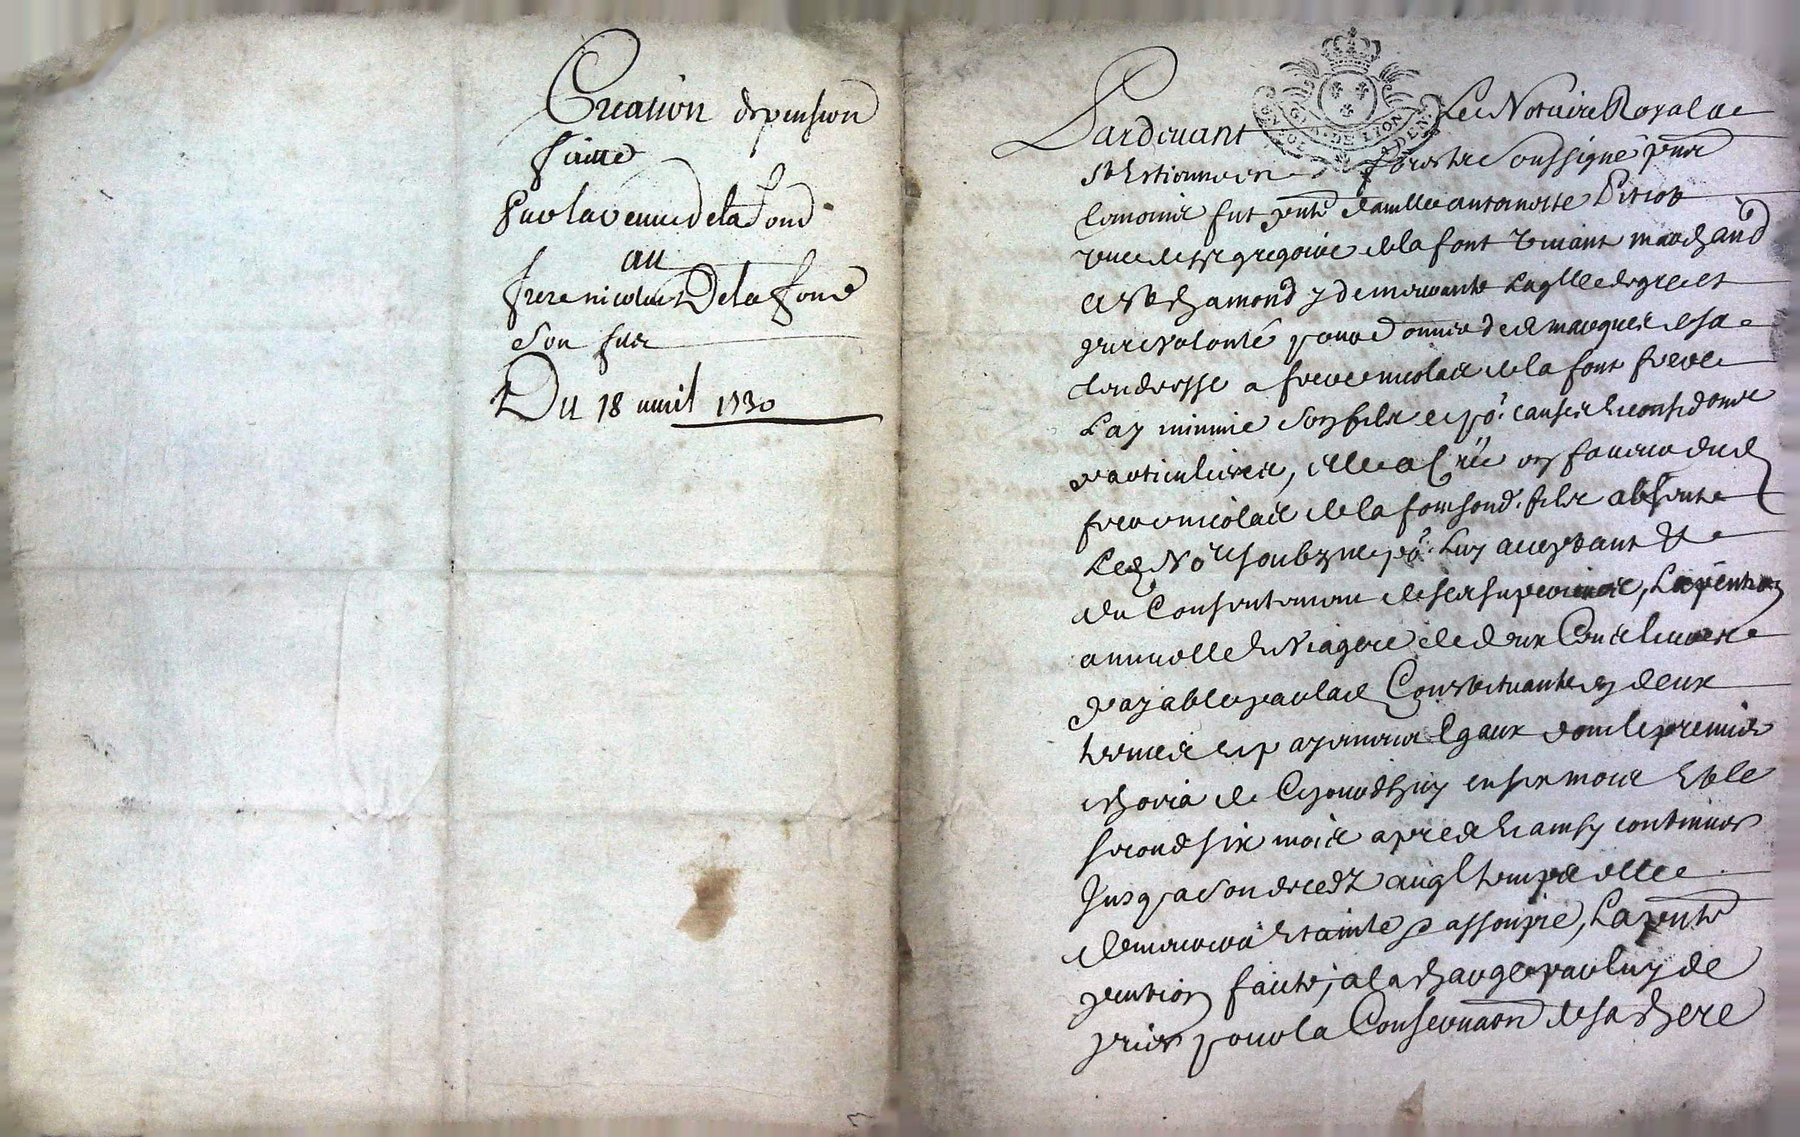 Creation de pension
faitte
par la veuve de la Fond
au
frere nicolas De la Fond
son fils
Du 18 avril 1730
GN. DE LION
Pardevant Le Notaire Royal a
St Estienne en forests soussigné
fut pnte damlle antoinette Pitiot
veuve de sr gregoire de la font vivant marchand
a St chamond y demeurante laqlle de gré et
pure volonté pour donner des marques de sa
tendresse a frere nicolas de la font frere
Lay minime son fils et pr causes et considoñs
particulieres, elle a Créé en faveur dud
frere nicolas de la font sond. fils absent
Led Nore soubzne pr Luy acceptant &
du Consentement de ses superieurs, La pention
annuelle et Viagere de deux Cens livres
payable par lad Constituante en deux
termes et payemens Egaux dont le premier
echoira de Cejourdhuy en six mois Et le
second six mois apres et ainsy continuer
Jusqu a son decedz auql temps elle
demeurera Etainte & assoupie, La pnte
pention faite, a la charge par luy de
prier pour la Conservaõn de sa chere